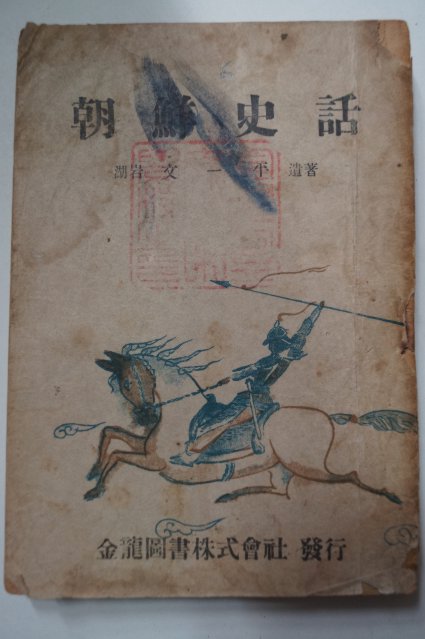 朝鮮史話
湖岩 文一平 遺著
金龍圖書株式會社 發行